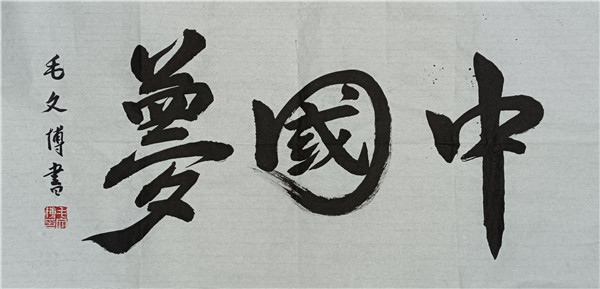 中國夢
毛文博書